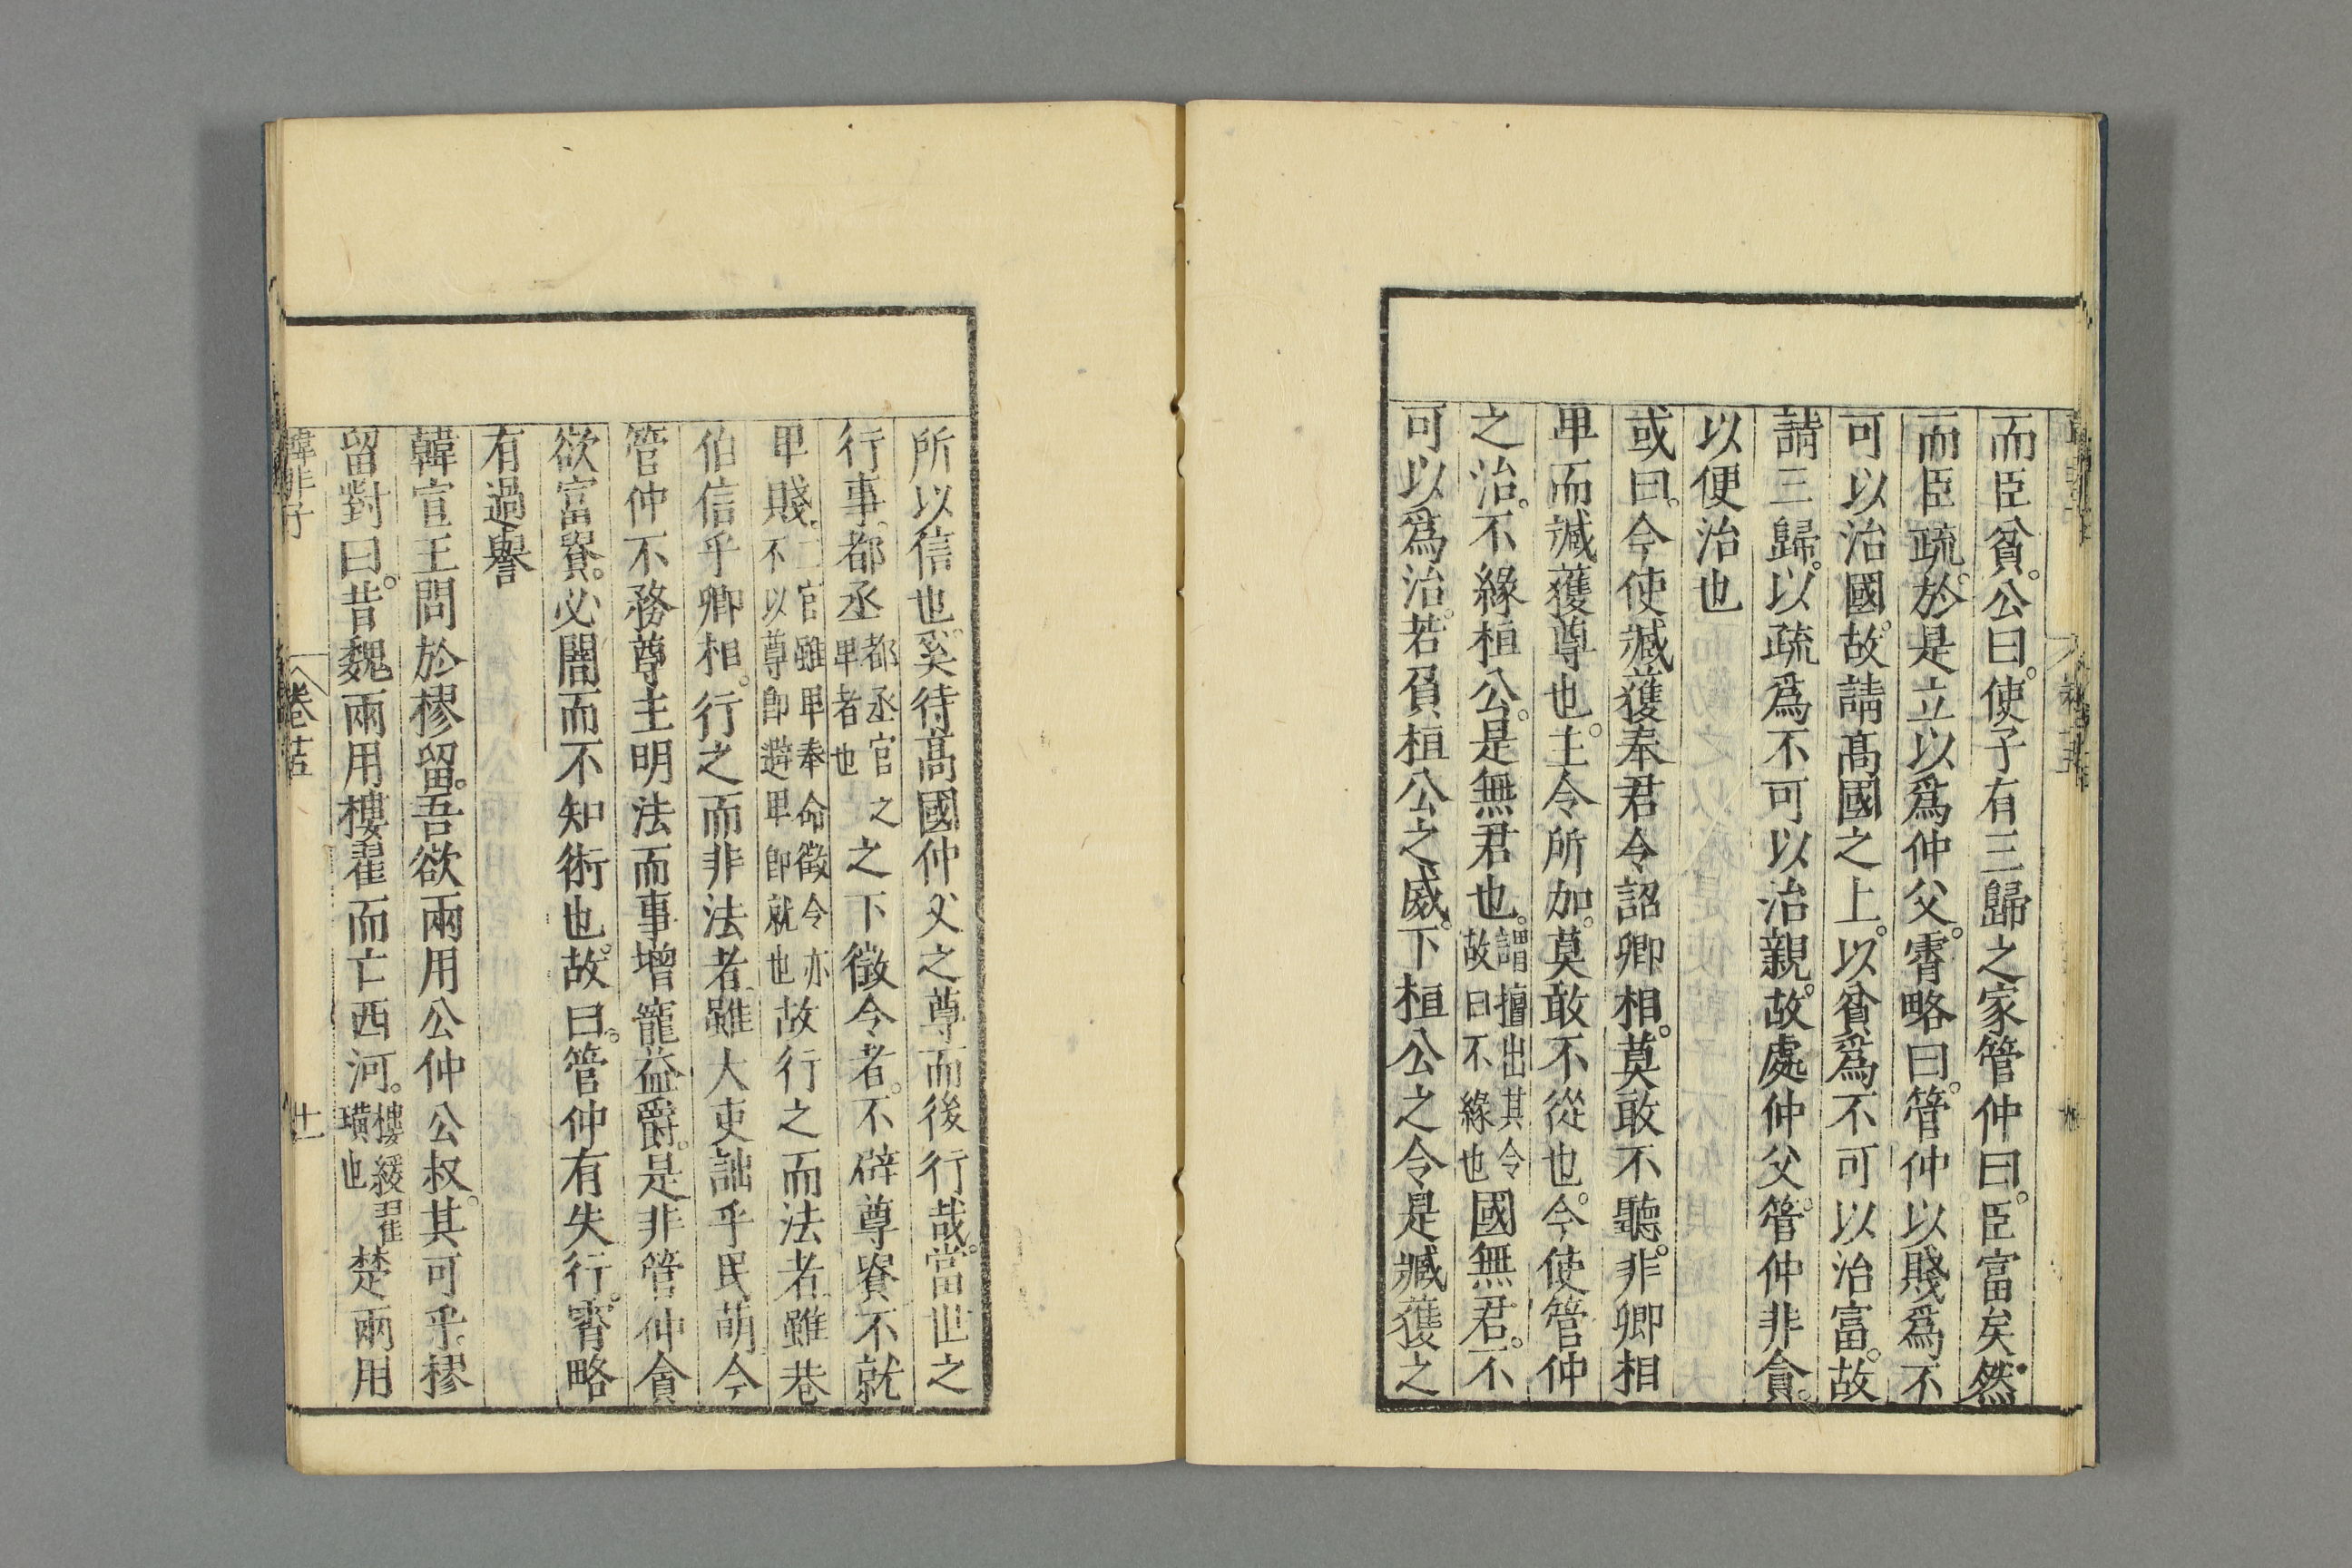 而臣貧。公曰。使子有三歸之家管仲曰。臣富矣。然
而臣疏。於是立以爲仲父。霄略曰。管仲以賤爲不
可以治國。故請髙國之上。以貧爲不可以治富。故
請三歸。以疏爲不可以治親。故處仲父。管仲非貪。
以便治也
或曰。今使臧獲奉君令詔卿相。莫敢不聽。非卿相
卑而臧獲尊也。主令所加。莫敢不從也。今使管仲
之治。不緣桓公。是無君也。謂擅出其令故曰不緣也國無君。不
可以爲治。若負桓公之威。下桓公之令是臧獲之
所以信也。奚待髙國仲父之尊而後行哉。當世之
行事。都丞都丞官之卑者也之下徵令者。不辟尊貴不就
卑賤。二官雖卑奉命徵令亦不以尊卽避卑卽就也故行之而法者。雖巷
伯信乎卿相。行之而非法者。雖大吏詘乎民萌。今
管仲不務尊主明法而事增寵益爵。是非管仲貪
欲富貴。必闇而不知術也。故曰。管仲有失行。霄略
有過譽
韓宣王問於樛留。吾欲兩用公仲公叔。其可乎。樛
留對曰。昔魏兩用樓翟而亡西河。樓緩翟璜也楚兩用
韓非子 卷十五 十一